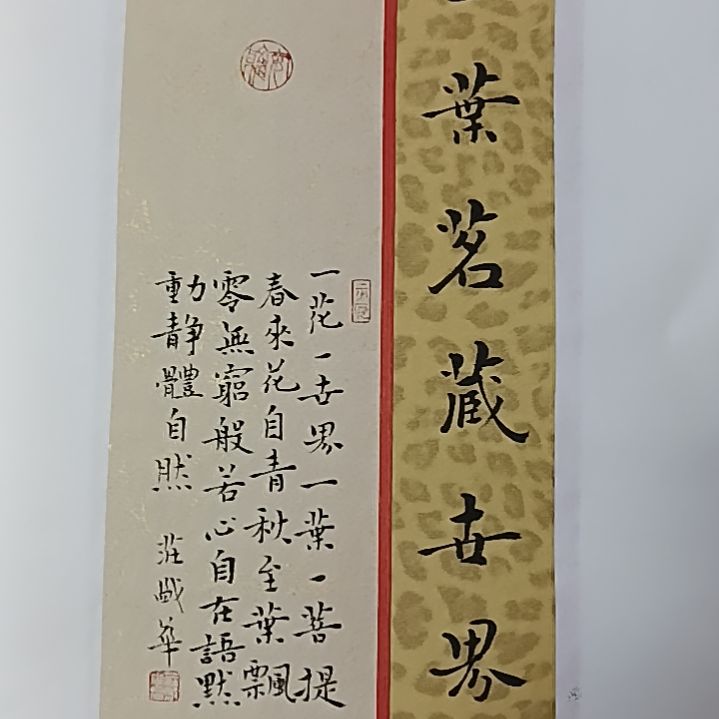 葉茗藏世界
一花一世界一葉一菩提
春來花自青秋至葉飄
零無窮般若心自在語默
動静體自然